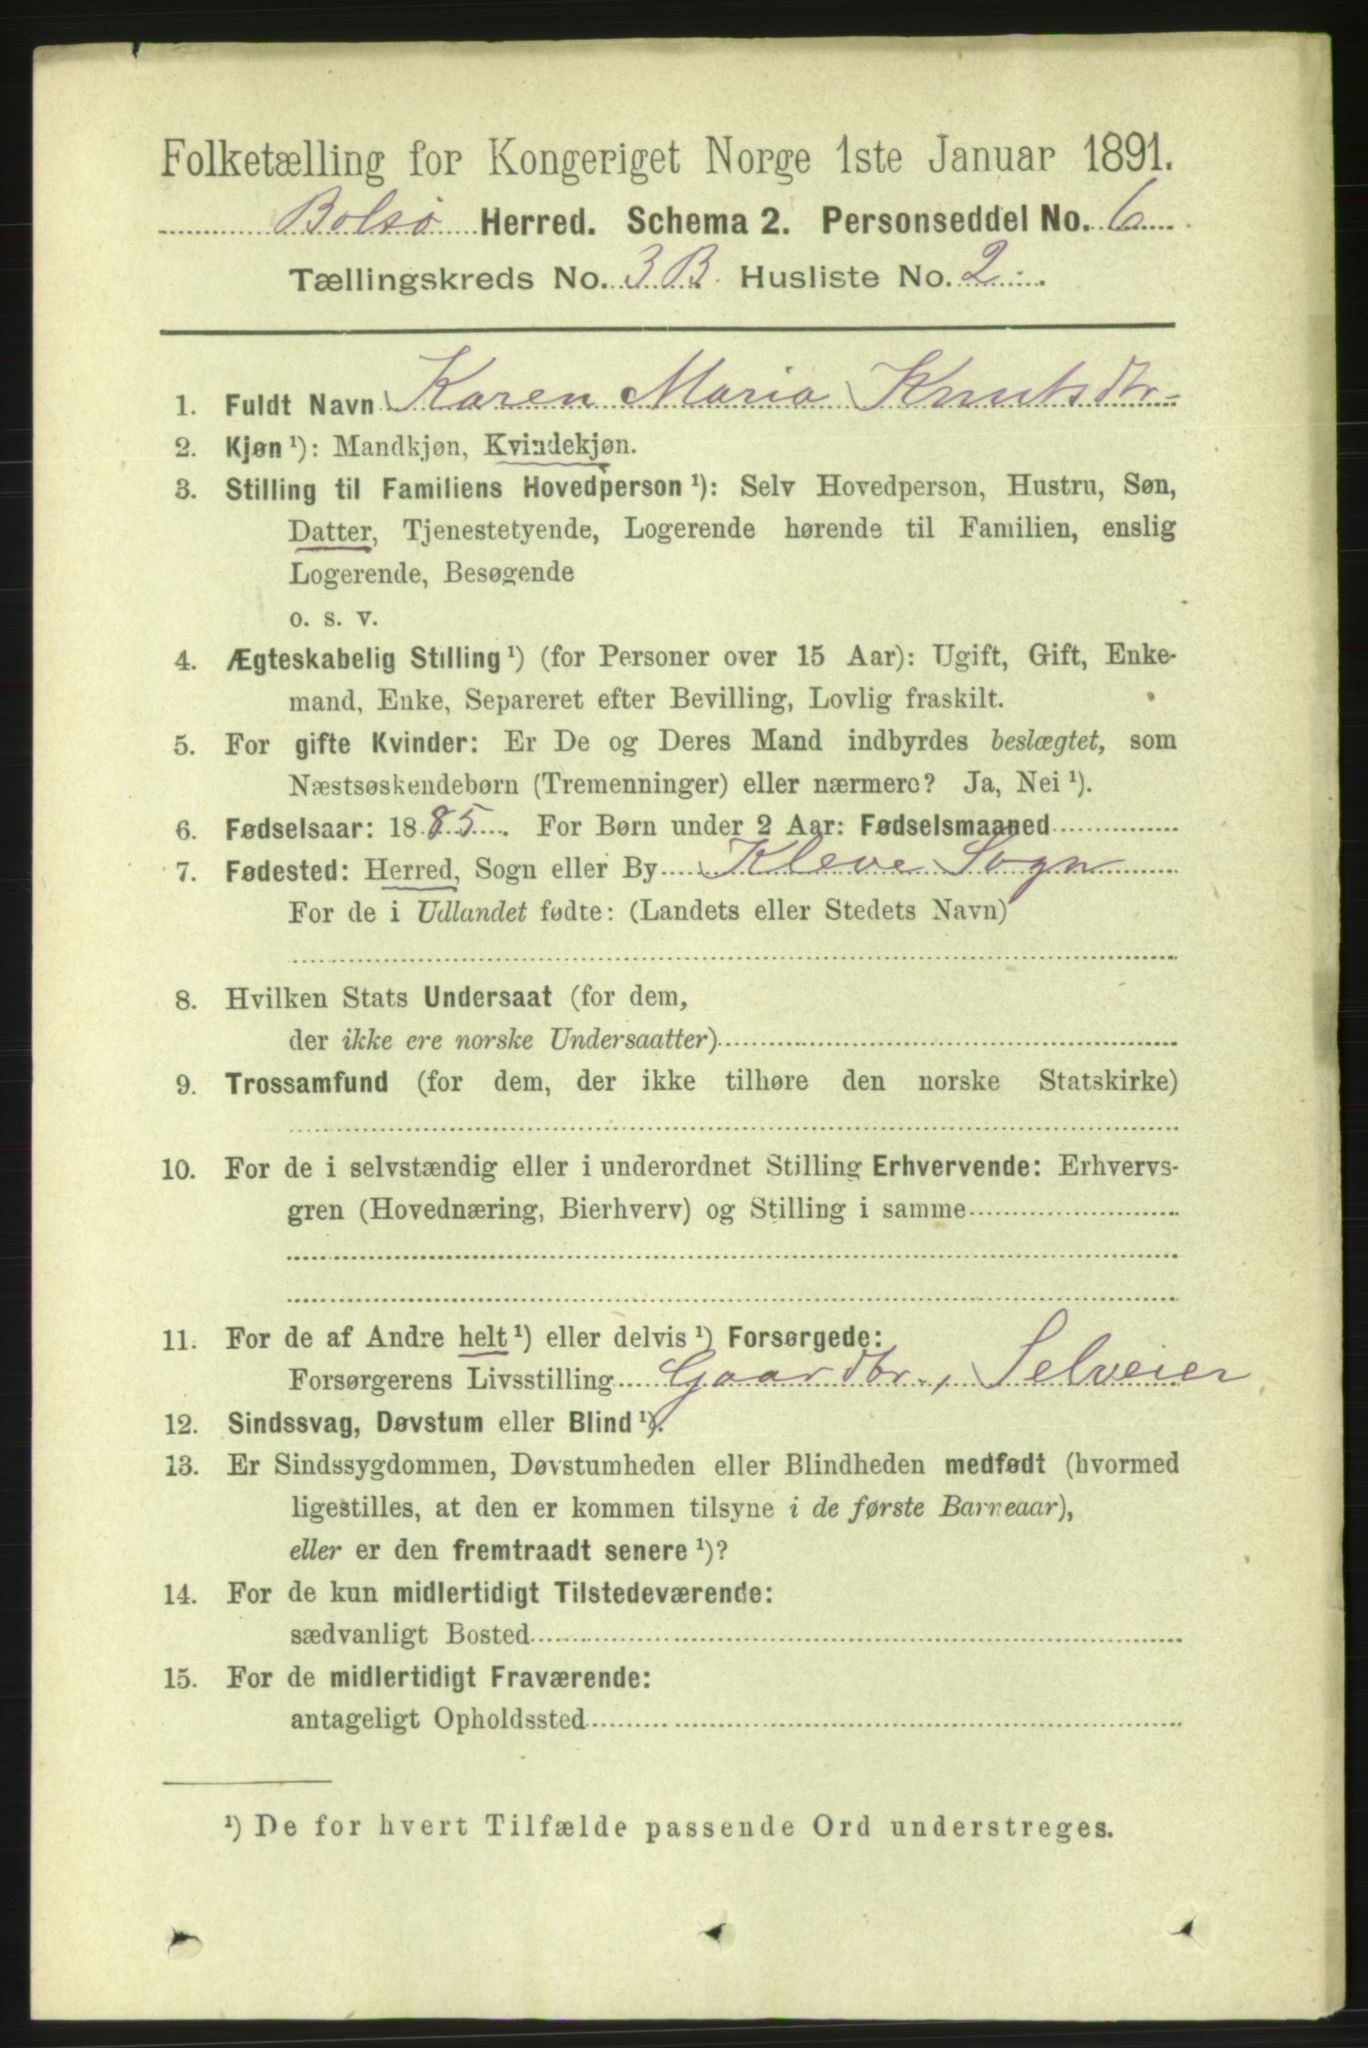 Folketælling for Kongeriget Norge 1ste Januar 1891.
Bolsø Herred. Schema 2. Personseddel No. 6
Tællingskreds No. 3B Husliste No. 2
1. Fuldt Navn Karen Maria Knutsdtr.
2. Kjøn ¹): Mandkjøn, Kvindekjøn.
3. Stilling til Familiens Hovedperson ¹): Selv Hovedperson, Hustru, Søn,
Datter, Tjenestetyende, Logerende hørende til Familien, enslig
Logerende, Besøgende
o. s. v.
4. Ægteskabelig Stilling ¹) (for Personer over 15 Aar): Ugift, Gift, Enke-
mand, Enke, Separeret efter Bevilling, Lovlig fraskilt.
5. For gifte Kvinder: Er De og Deres Mand indbyrdes beslægtet, som
Næstsøskendebørn (Tremenninger) eller nærmere? Ja, Nei ¹).
6. Fødselsaar: 1885. For Børn under 2 Aar: Fødselsmaaned
7. Fødested: Herred, Sogn eller By Kleve Sogn
For de i Udlandet fødte: (Landets eller Stedets Navn)
8. Hvilken Stats Undersaat (for dem,
der ikke ere norske Undersaatter)
9. Trossamfund (for dem, der ikke tilhøre den norske Statskirke)
10. For de i selvstændig eller i underordnet Stilling Erhvervende: Erhvervs-
gren (Hovednæring, Bierhverv) og Stilling i samme
11. For de af Andre helt ¹) eller delvis ¹) Forsørgede:
Forsørgerens Livsstilling Gaardbr., Selveier
12. Sindssvag, Døvstum eller Blind ¹).
13. Er Sindssygdommen, Døvstumheden eller Blindheden medfødt (hvormed
ligestilles, at den er kommen tilsyne i de første Barneaar),
eller er den fremtraadt senere ¹)?
14. For de kun midlertidigt Tilstedeværende:
sædvanligt Bosted
15. For de midlertidigt Fraværende:
antageligt Opholdssted
¹) De for hvert Tilfælde passende Ord understreges.